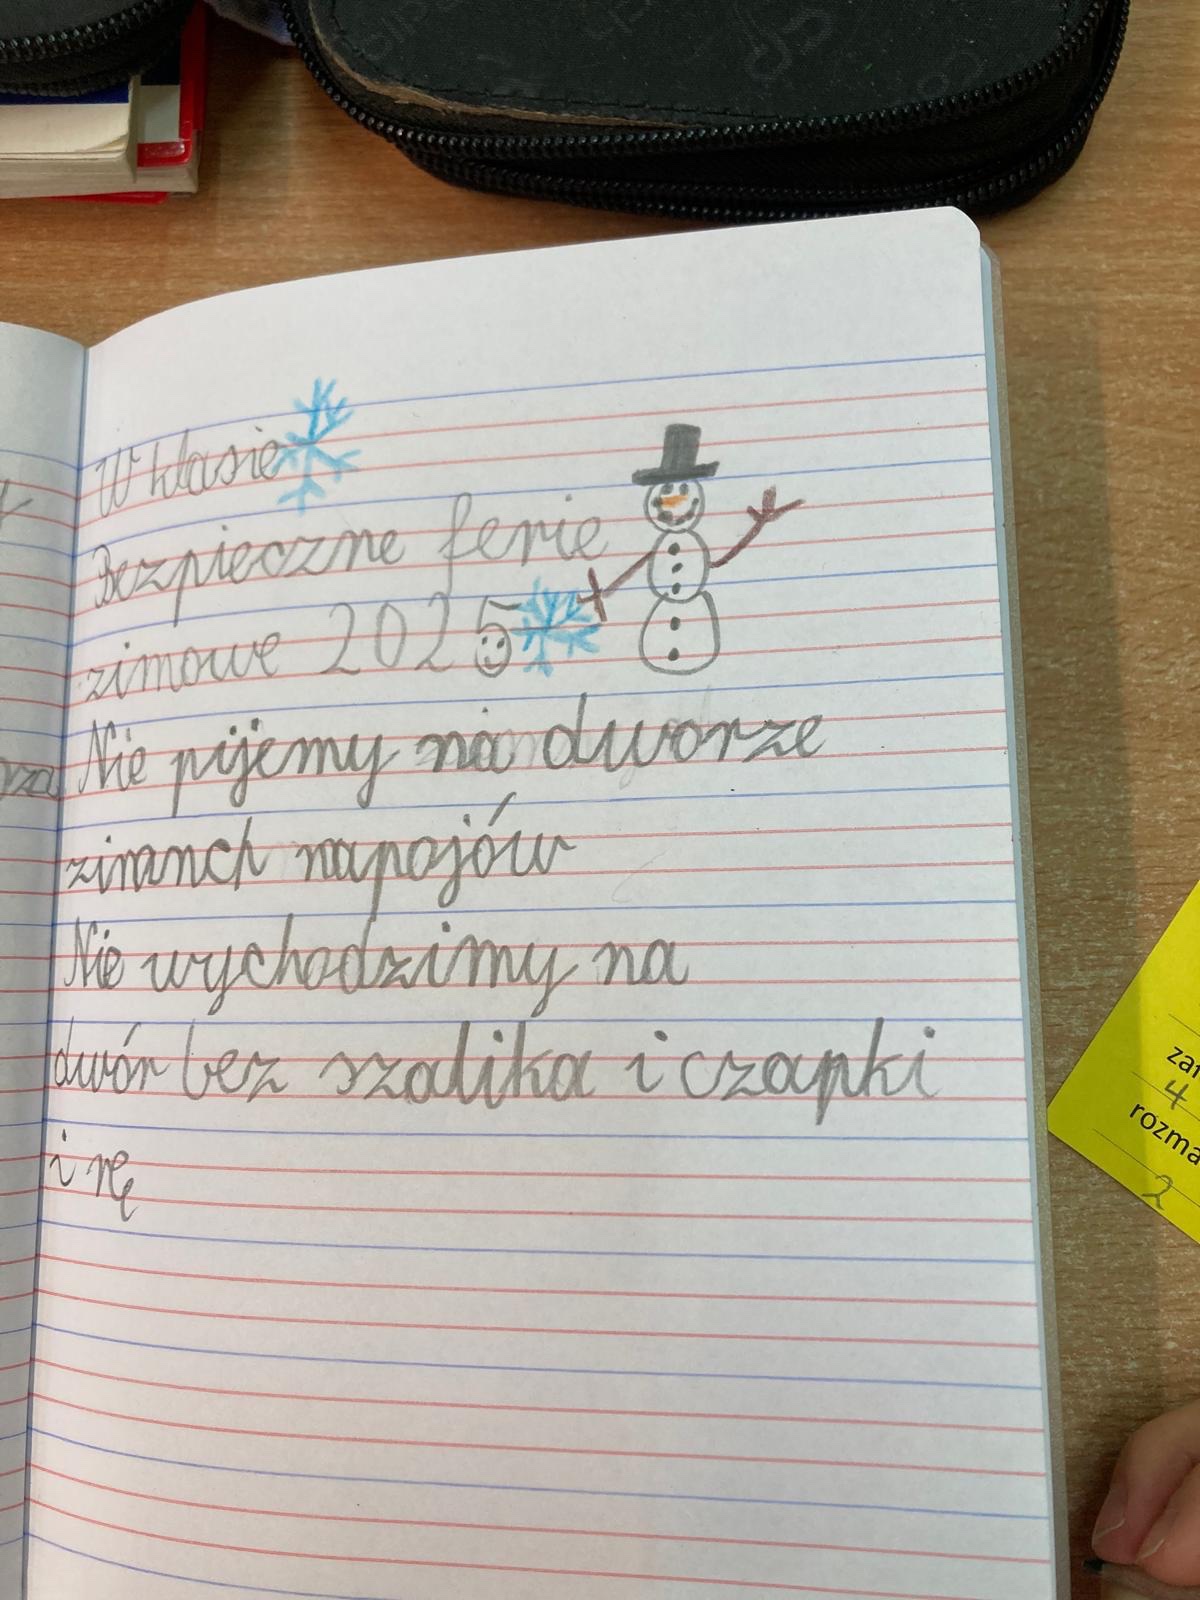 W klasie
Bezpieczne ferie
zimowe 2025
Nie pijemy na dworze
zimnch napojów
Nie wychodzimy na
dwór bez szalika i czapki
i rę
rza
zar
4
rozma
2